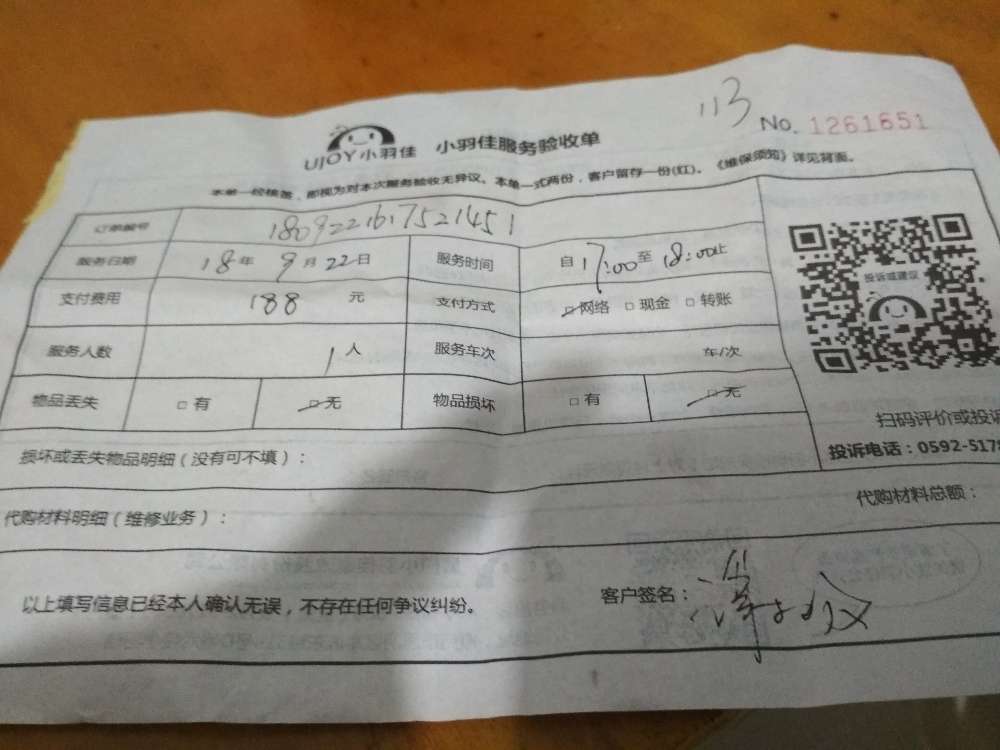 113
No. 1261651
UJOY小羽佳 小羽佳服务验收单
本单一经核签，即视为对本次服务验收无异议。本单一式两份，客户留存一份(红)。《维保须知》详见背面。
订单编号 1809221617521451
服务日期 18年9月22日 服务时间 自17:00至18:00止
支付费用 188元 支付方式 □网络 □现金 □转账
服务人数 1人 服务车次 车/次
物品丢失 □有 □无 物品损坏 □有 □无
投诉或建议
扫码评价或投诉
投诉电话：0592-5178
损坏或丢失物品明细（没有可不填）：
代购材料明细（维修业务）： 代购材料总额：
以上填写信息已经本人确认无误，不存在任何争议纠纷。 客户签名：